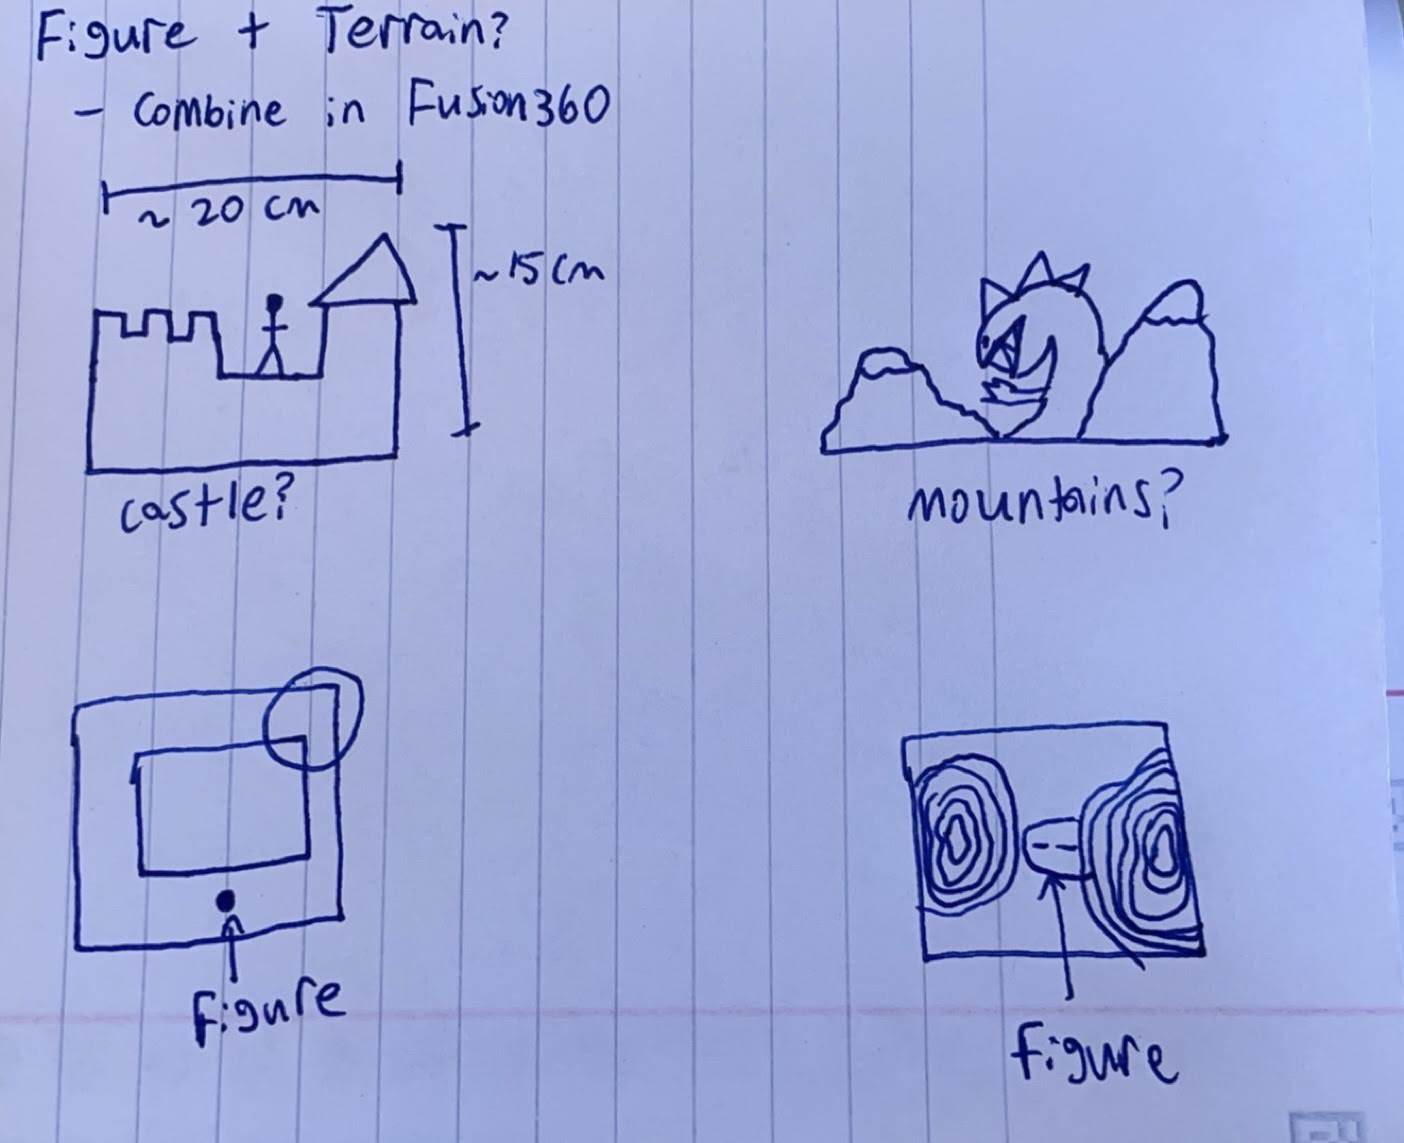 Figure + Terrain?
- Combine in Fusion360
~ 20 cm
~15cm
castle?
mountains?
Figure
Figure